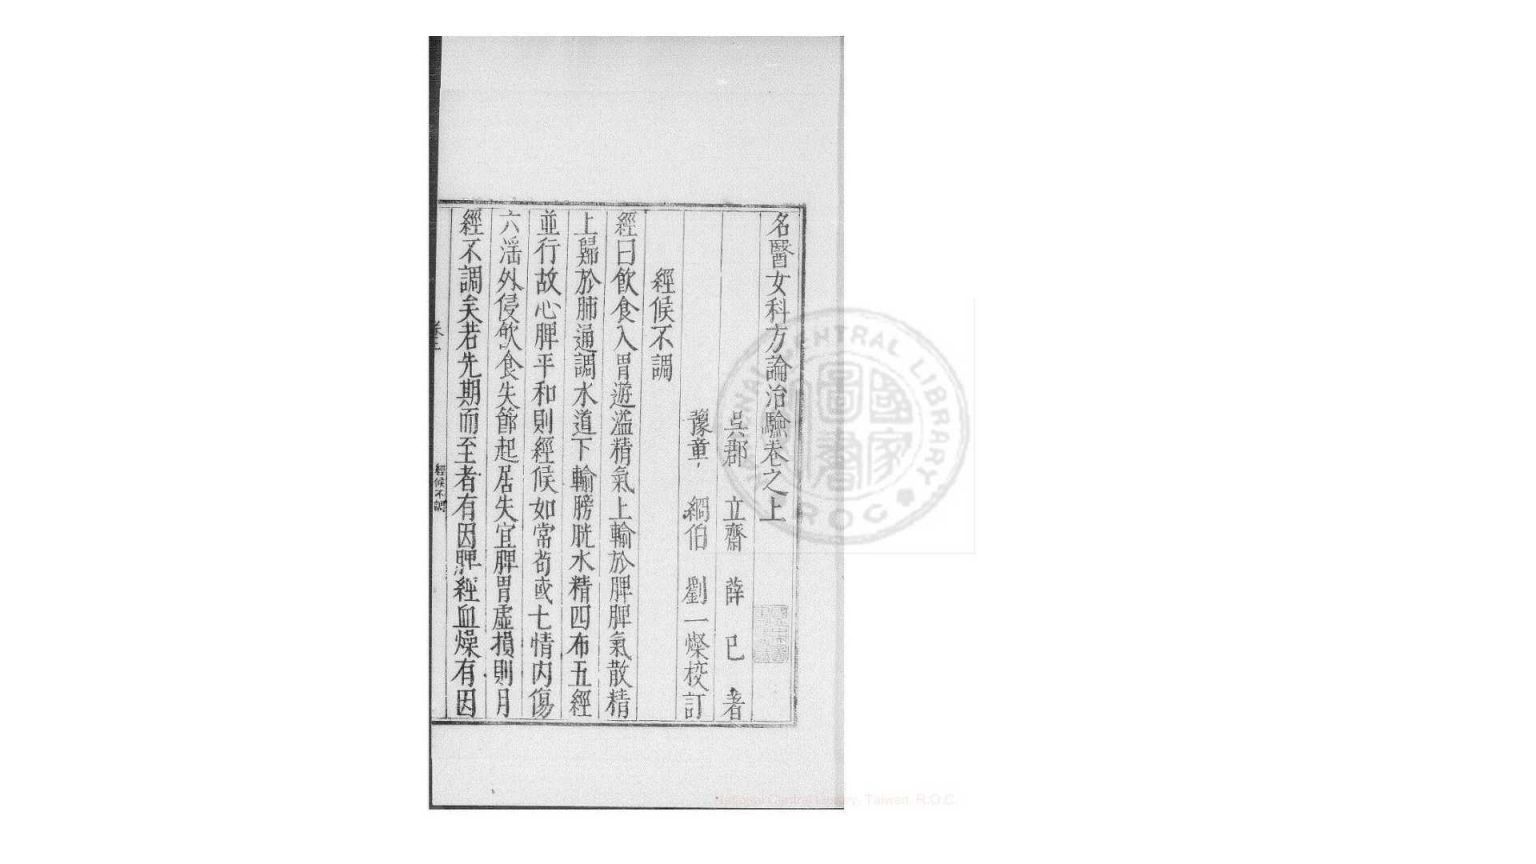 名醫女科方論治驗卷之上
吳郡　立齋　薛已　著
豫章　綱伯　劉一燦校訂
經候不調
經曰飲食入胃遊溢精氣上輸於脾脾氣散精
上歸於肺通調水道下輸膀胱水精四布五經
並行故心脾平和則經候如常苟或七情內傷
六滛外侵飲食失節起居失宜脾胃虛損則月
經不調矣若先期而至者有因脾經血燥有因
經候不調
NATIONAL CENTRAL LIBRARY R.O.C.
國家圖書
National Central Library, Taiwan, R.O.C.